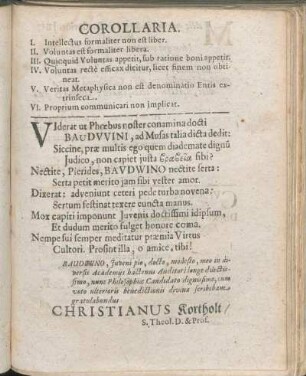 COROLLARIA.
I. Intellectus formaliter non est liber.
II. Voluntas est formaliter libera.
III. Quicquid Voluntas appetit, sub ratione boni appetit.
IV. Voluntas rectè efficax dicitur, licet finem non obti-
neat.
V. Veritas Metaphysica non est denominatio Entis ex-
trinseca.
VI. Proprium communicari non implicat.
Viderat ut Phœbus noster conamina docti
BAUDVVINI, ad Musas talia dicta dedit:
Siccine, præ multis ego quem diademate dignũ
Judico, non capiet justa βραβεῖα sibi?
Nectite, Pierides, BAVDWINO nectite serta:
Serta petit merito jam sibi vester amor.
Dixerat: adveniunt ceteri pede turba novena:
Sertum festinat texere cuncta manus.
Mox capiti imponunt Juvenis doctissimi idipsum,
Et dudum merito fulget honore coma.
Nempe sui semper meditatur præmia Virtus
Cultori. Prosint illa, ô amice, tibi!
BAUDUINO, Juveni pio, docto, modesto, meo in di-
versis Academiis hactenus Auditori longè dilectis-
simo, nunc Philosophiæ Candidato dignissimo, cum
voto ulterioris benedictionis divinæ scribebam
gratulabundus
CHRISTIANUS Kortholt/
S. Theol. D. & Prof.